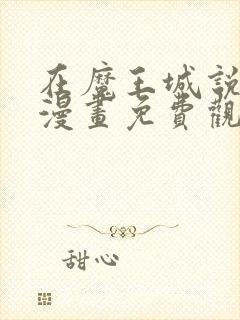 在魔王城說
漫畫免費觀
甜心